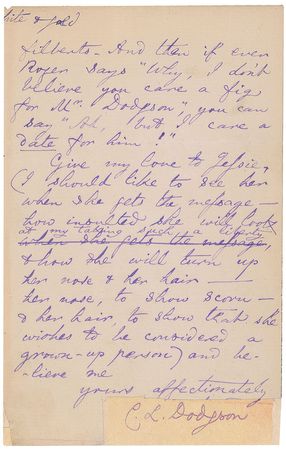 & gold
filberts — And then if ever
Roger says "Why, I don't
believe you care a fig
for Mr. Dodgson", you can
say "Oh, but I care a
date for him!"
Give my love to Jessie,
(I should like to see her
when she gets the message —
how insulted she will look
at my taking such a liberty
when she gets the message,
& how she will turn up
her nose & her hair —
her nose, to show scorn —
& her hair, to show that she
wishes to be considered a
grown-up person) and be-
lieve me
yours affectionately
C. L. Dodgson